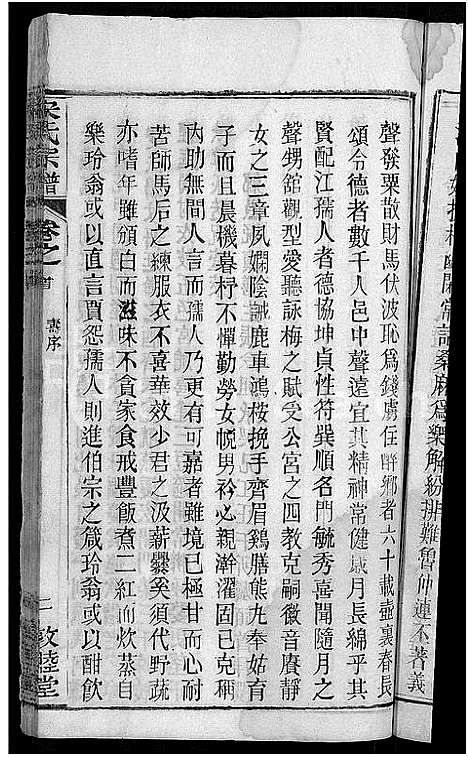 桑麻為樂解紛排難魯仲連不著義
聲發粟散財馬伏波恥為錢虜住醉鄉者六十載壺裏春長
頌令德者數千人邑中聲遠宜其精神常健歲月長綿乎其
賢配江孺人者德協坤貞性符巽順名門毓秀喜聞隨月之
聲甥舘觀型愛聽詠梅之賦受公宮之四教克嗣徽音賡靜
女之三章夙嫻陰誡鹿車鴻桉挽手齊眉鷄膳熊九奉姑育
子而且晨機暮杼不憚勤勞女帨男衿必親澣濯固已克稱
內助無間人言而孺人乃更有可嘉者雖境已極甘而心耐
苦師馬后之練服衣不喜華效少君之汲薪爨奚須代野蔬
亦嗜年雖頒白而滋味不貪家食戒豐飯煮二紅而炊蒸自
樂玲翁或以直言賈怨孺人則進伯宗之箴玲翁或以酣飲
宋氏宗譜
卷之首
壽序
二
敦睦堂